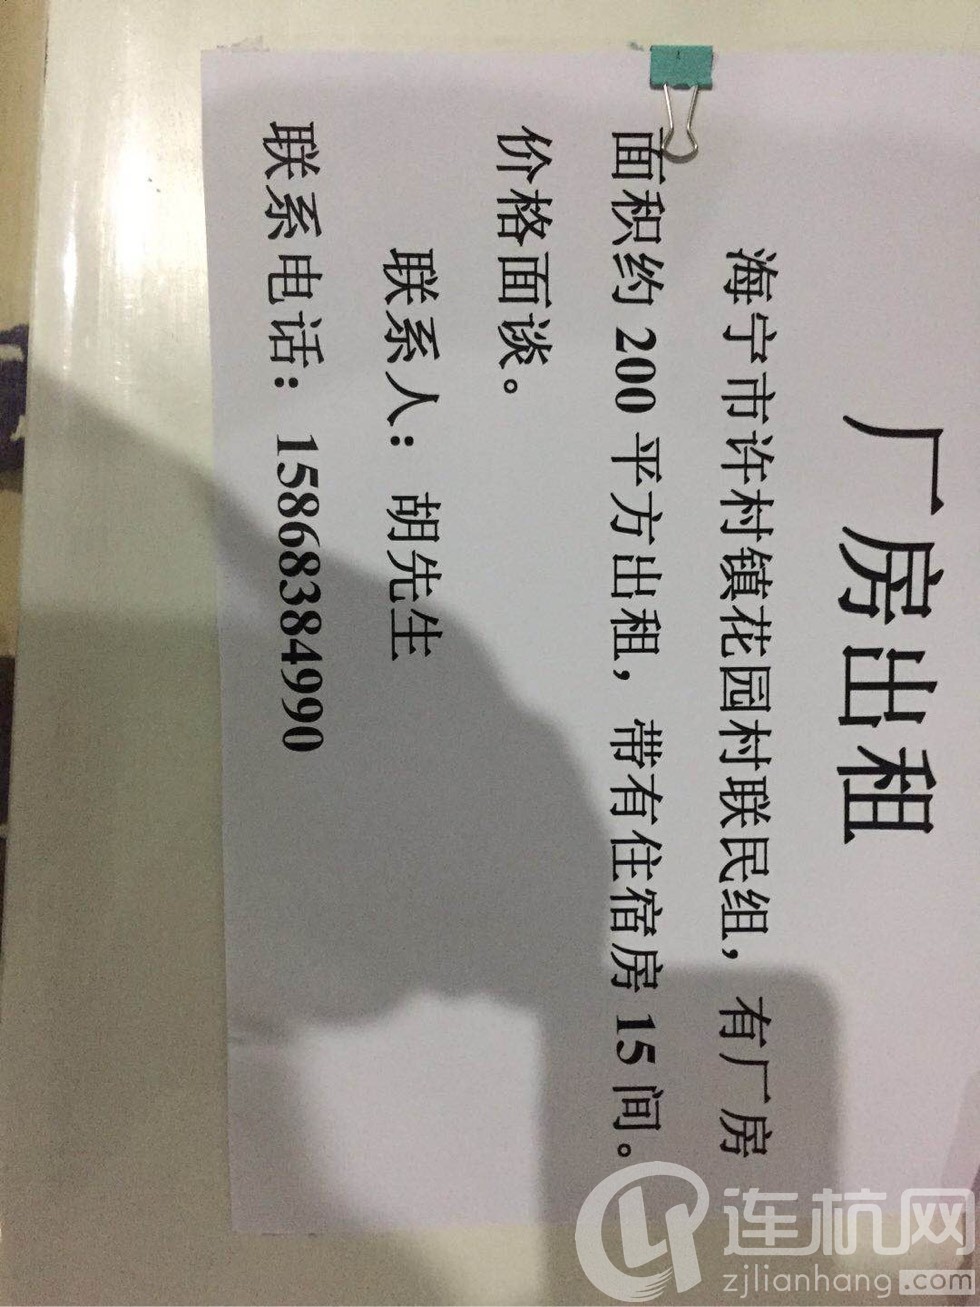 厂房出租
海宁市许村镇花园村联民组，有厂房
面积约 200 平方出租，带有住宿房 15 间。
价格面谈。
联系人：胡先生
联系电话：15868384990
连杭网
zjlianhang.com